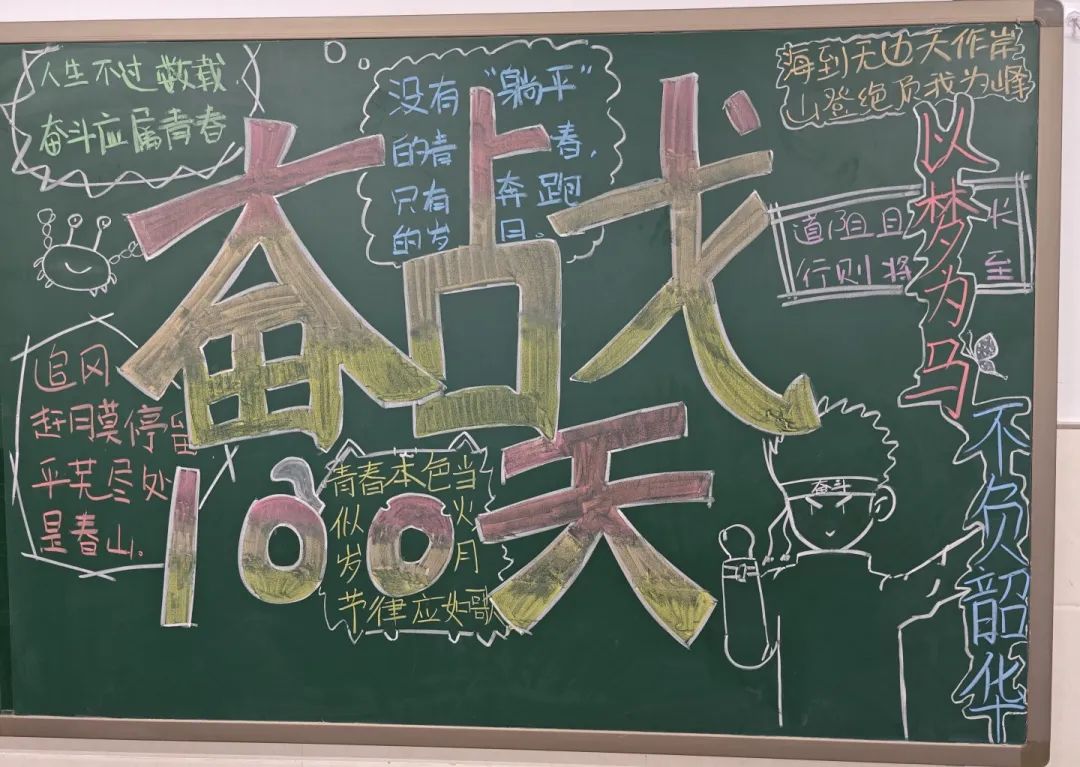 人生不过数载,
奋斗应属青春
没有“躺平”
的青春,
只有奔跑
的岁月。
海到无边天作岸
山登绝顶我为峰
道阻且长
行则将至
以梦为马
不负韶华
奋战
100天
追风
赶月莫停留
平芜尽处
是春山。
青春本色当
似火
岁月
节律应如歌
奋斗